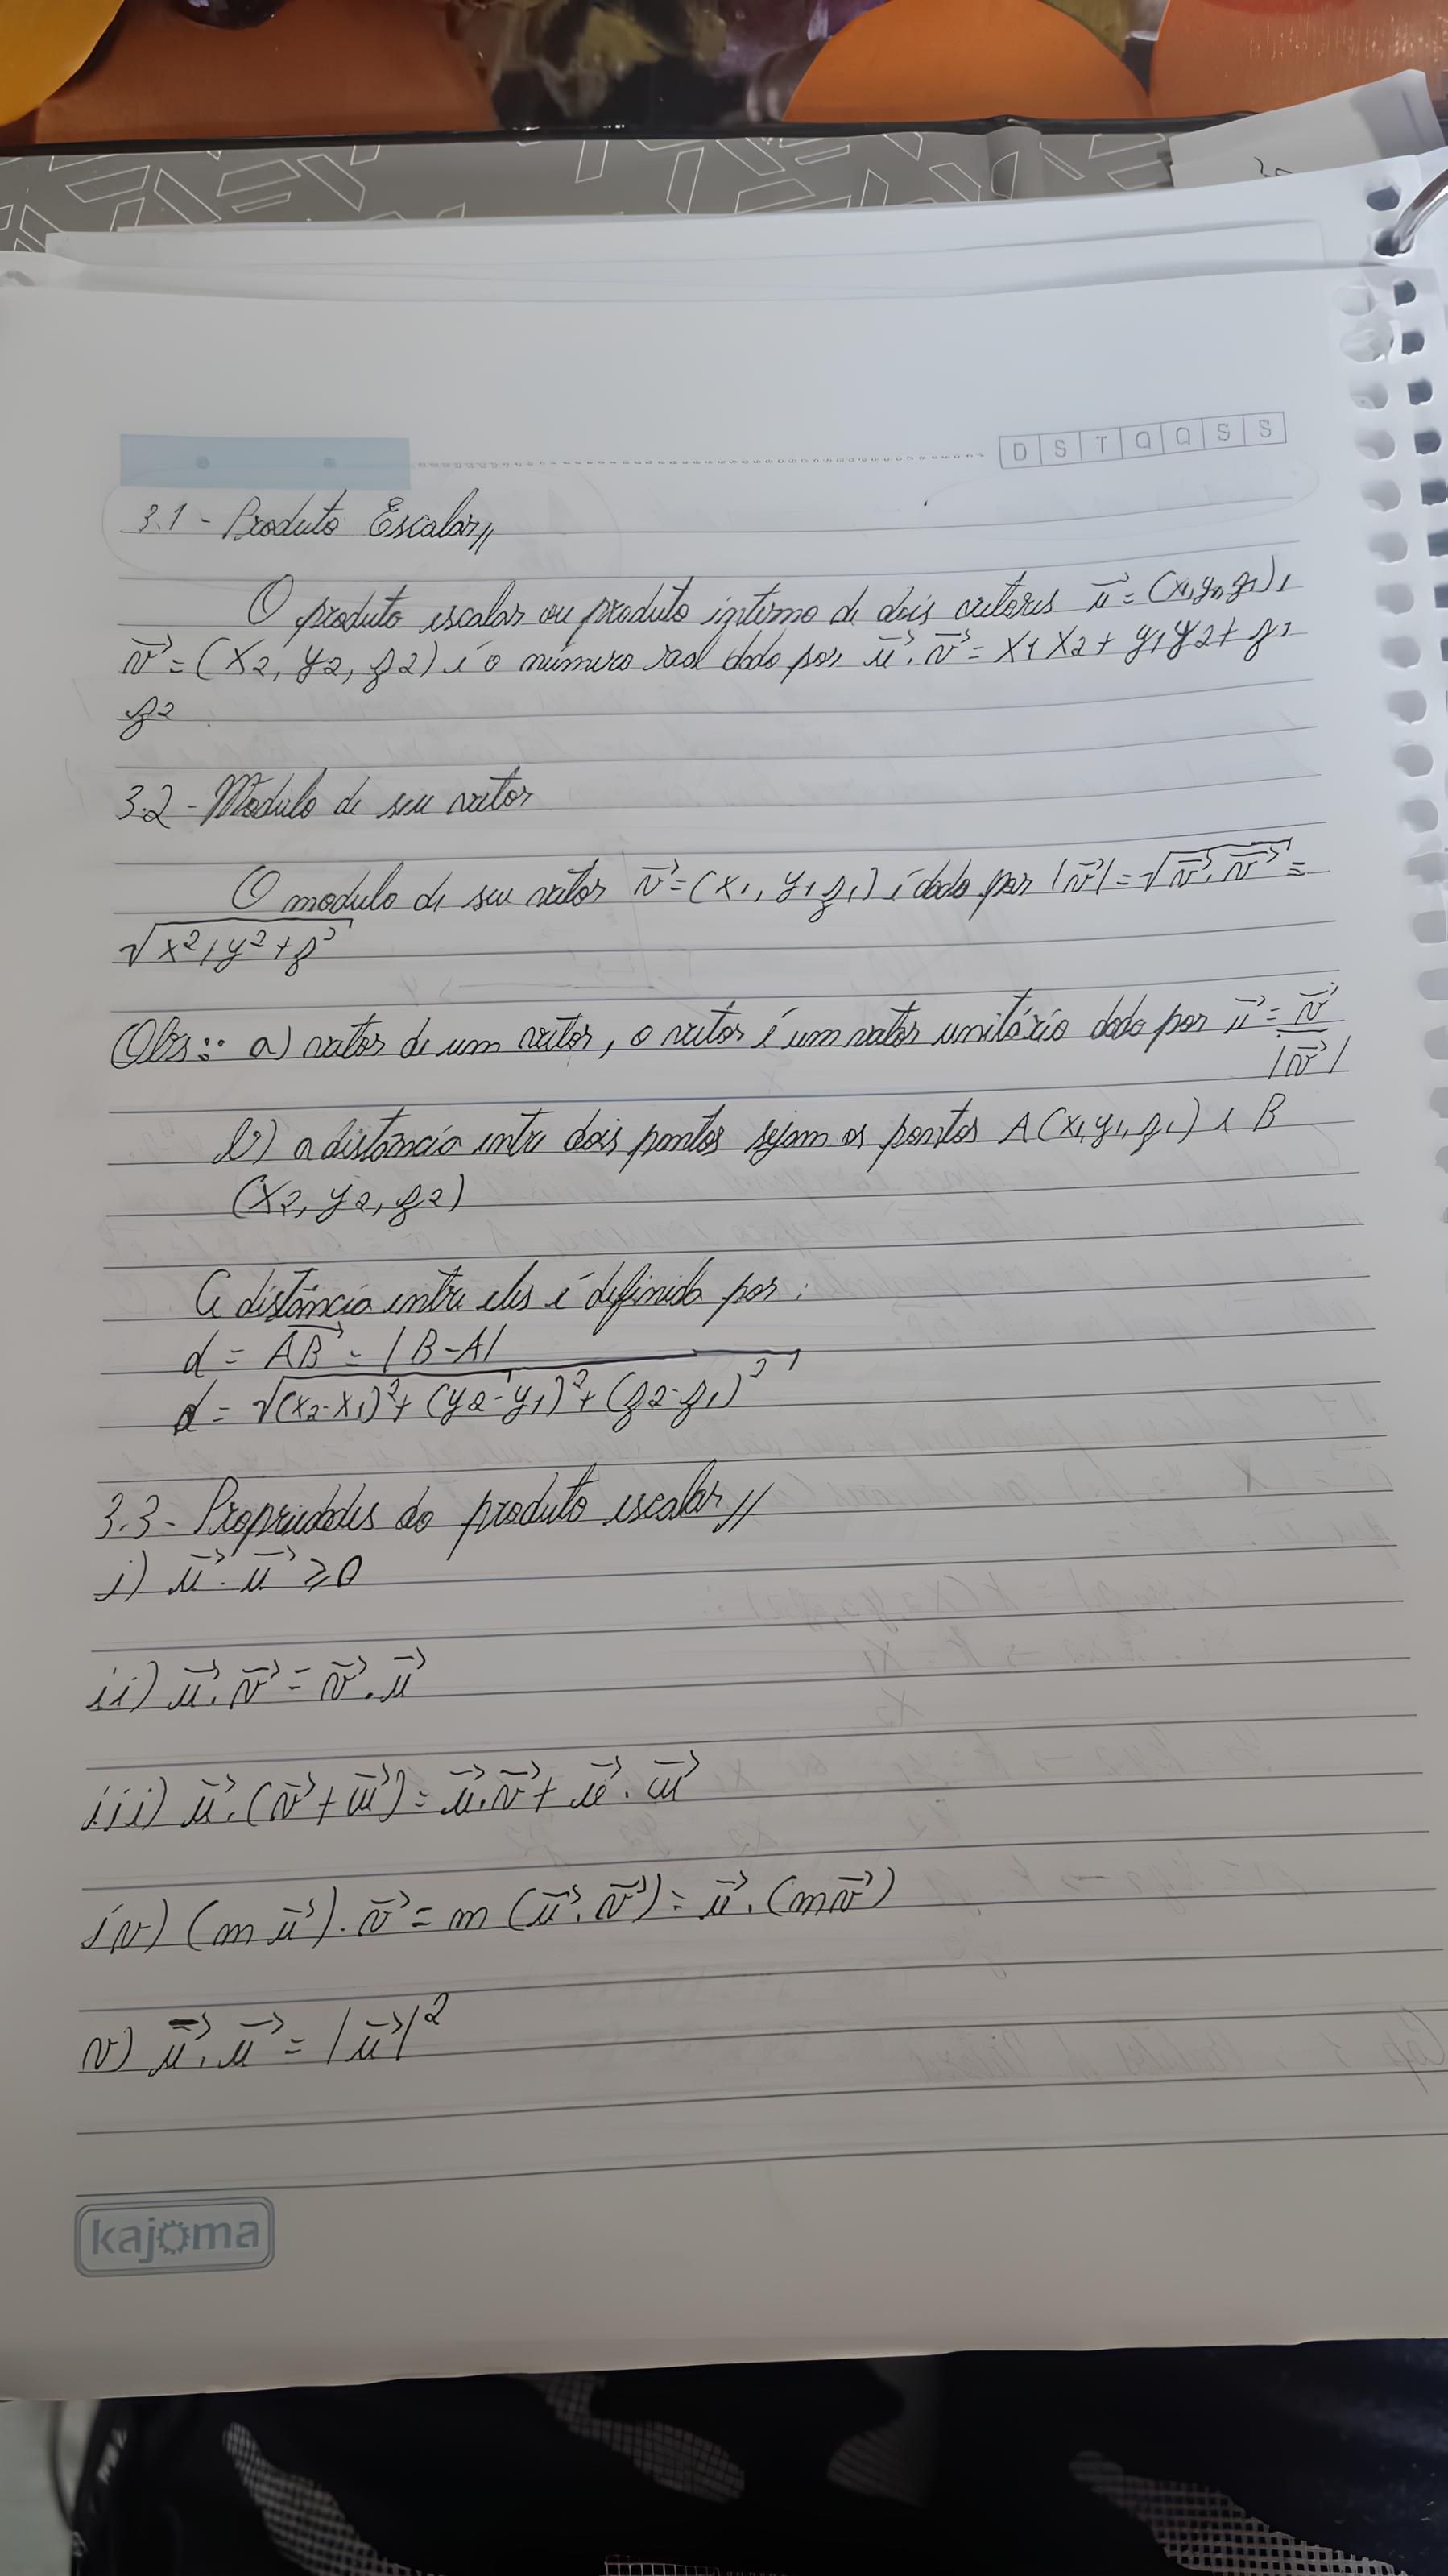 D S T Q Q S S
3.1 - Produto Escalar//
O produto escalar ou produto interno de dois vetores u⃗ = (x1,y1,z1) e
v⃗ = (x2, y2, z2) é o número real dado por u⃗ . v⃗ = x1 x2 + y1 y2 + z1
z2
3.2 - Modulo de seu vetor
O modulo de seu vetor v⃗ = (x1, y1 z1) é dado por |v⃗| = √v⃗ . v⃗ =
√x² + y² + z²
Obs:: a) vetor de um vetor, o vetor é um vetor unitário dado por u⃗ = v⃗
|v⃗|
b) a distância entre dois pontos sejam os pontos A (x1,y1,z1) e B
(x2, y2, z2)
A distância entre eles é definida por:
d = AB⃗ = |B-A|
d = √(x2-x1)² + (y2-y1)² + (z2-z1)²
3.3 - Propriedades do produto escalar//
i) u⃗ . u⃗ ≥ 0
ii) u⃗ . v⃗ = v⃗ . u⃗
iii) u⃗ . (v⃗ + w⃗) = u⃗ . v⃗ + u⃗ . w⃗
iv) (m u⃗) . v⃗ = m (u⃗ . v⃗) = u⃗ . (m v⃗)
v) u⃗ . u⃗ = |u⃗|²
kajoma